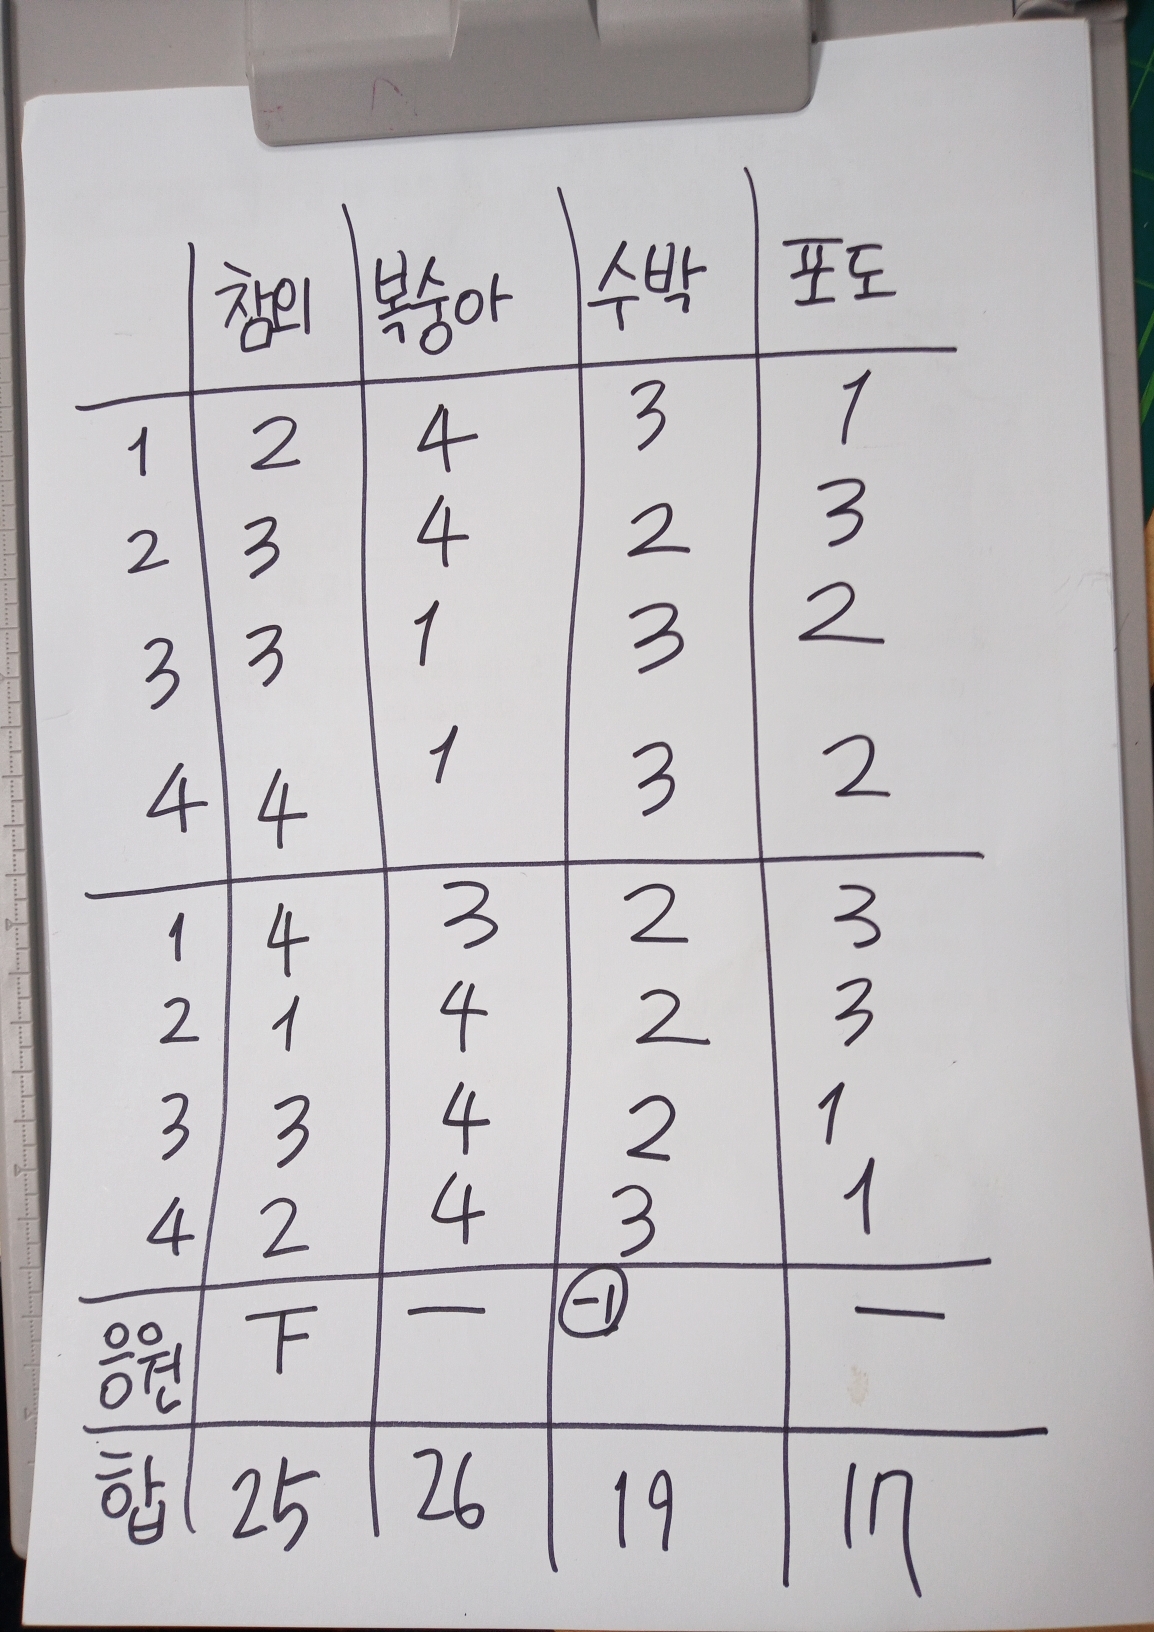 참외 복숭아 수박 포도
1 2 4 3 1
2 3 4 2 3
3 3 1 3 2
4 4 1 3 2
1 4 3 2 3
2 1 4 2 3
3 3 4 2 1
4 2 4 3 1
응원 下 一 -1 一
합 25 26 19 17